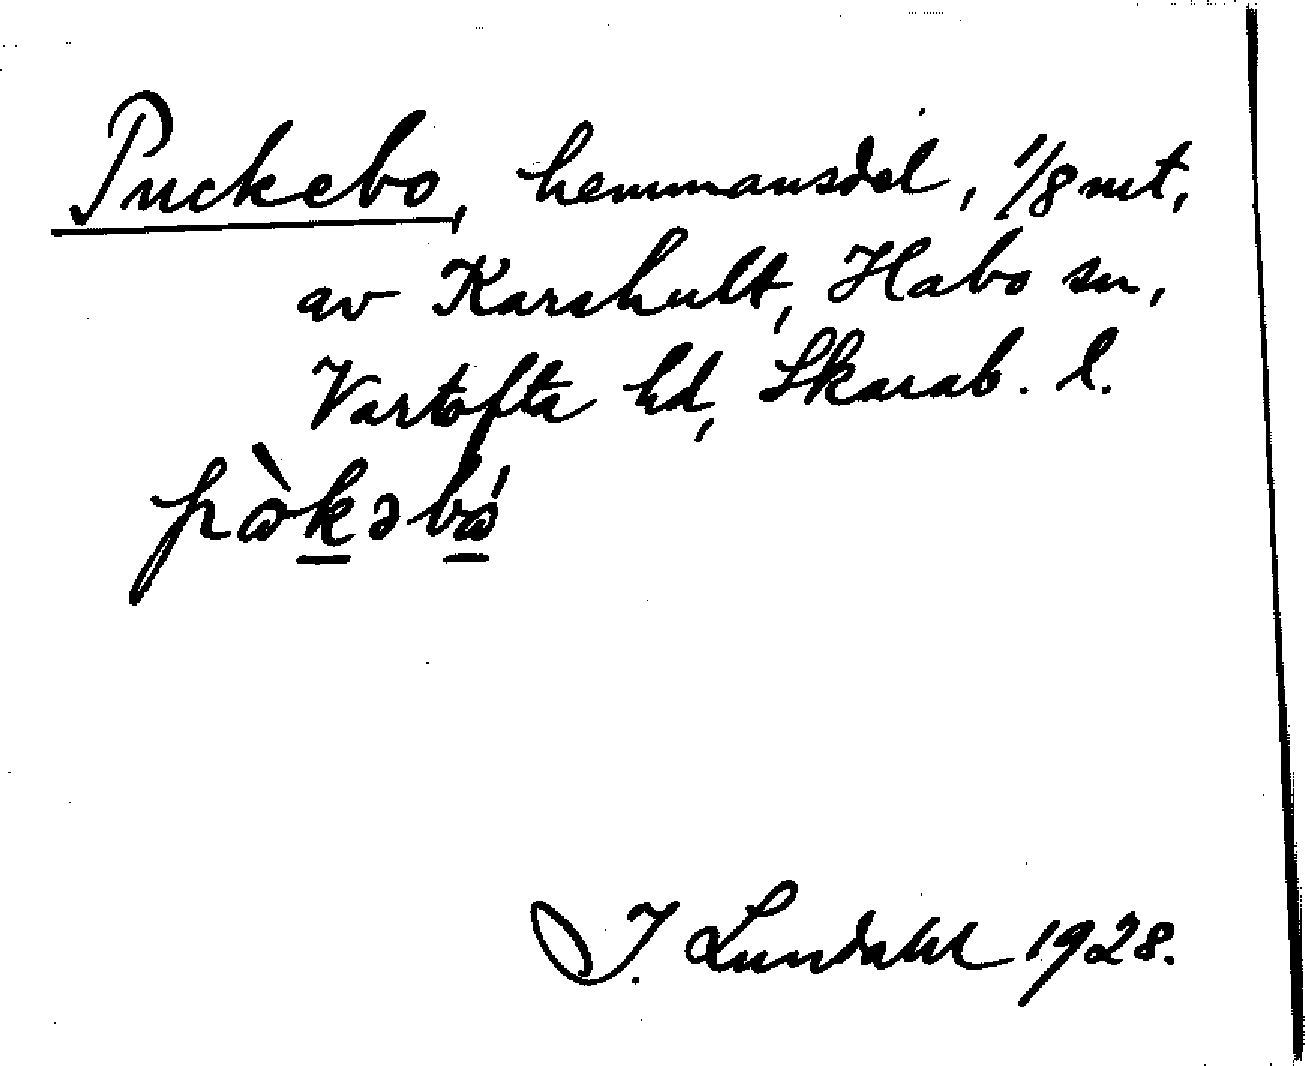 Puckebo, hemmansdel, 1/8 mt,
av Karshult, Habo sn,
Vartofta hd, Skarab. l.
pàkəbá
I. Lundahl 1928.